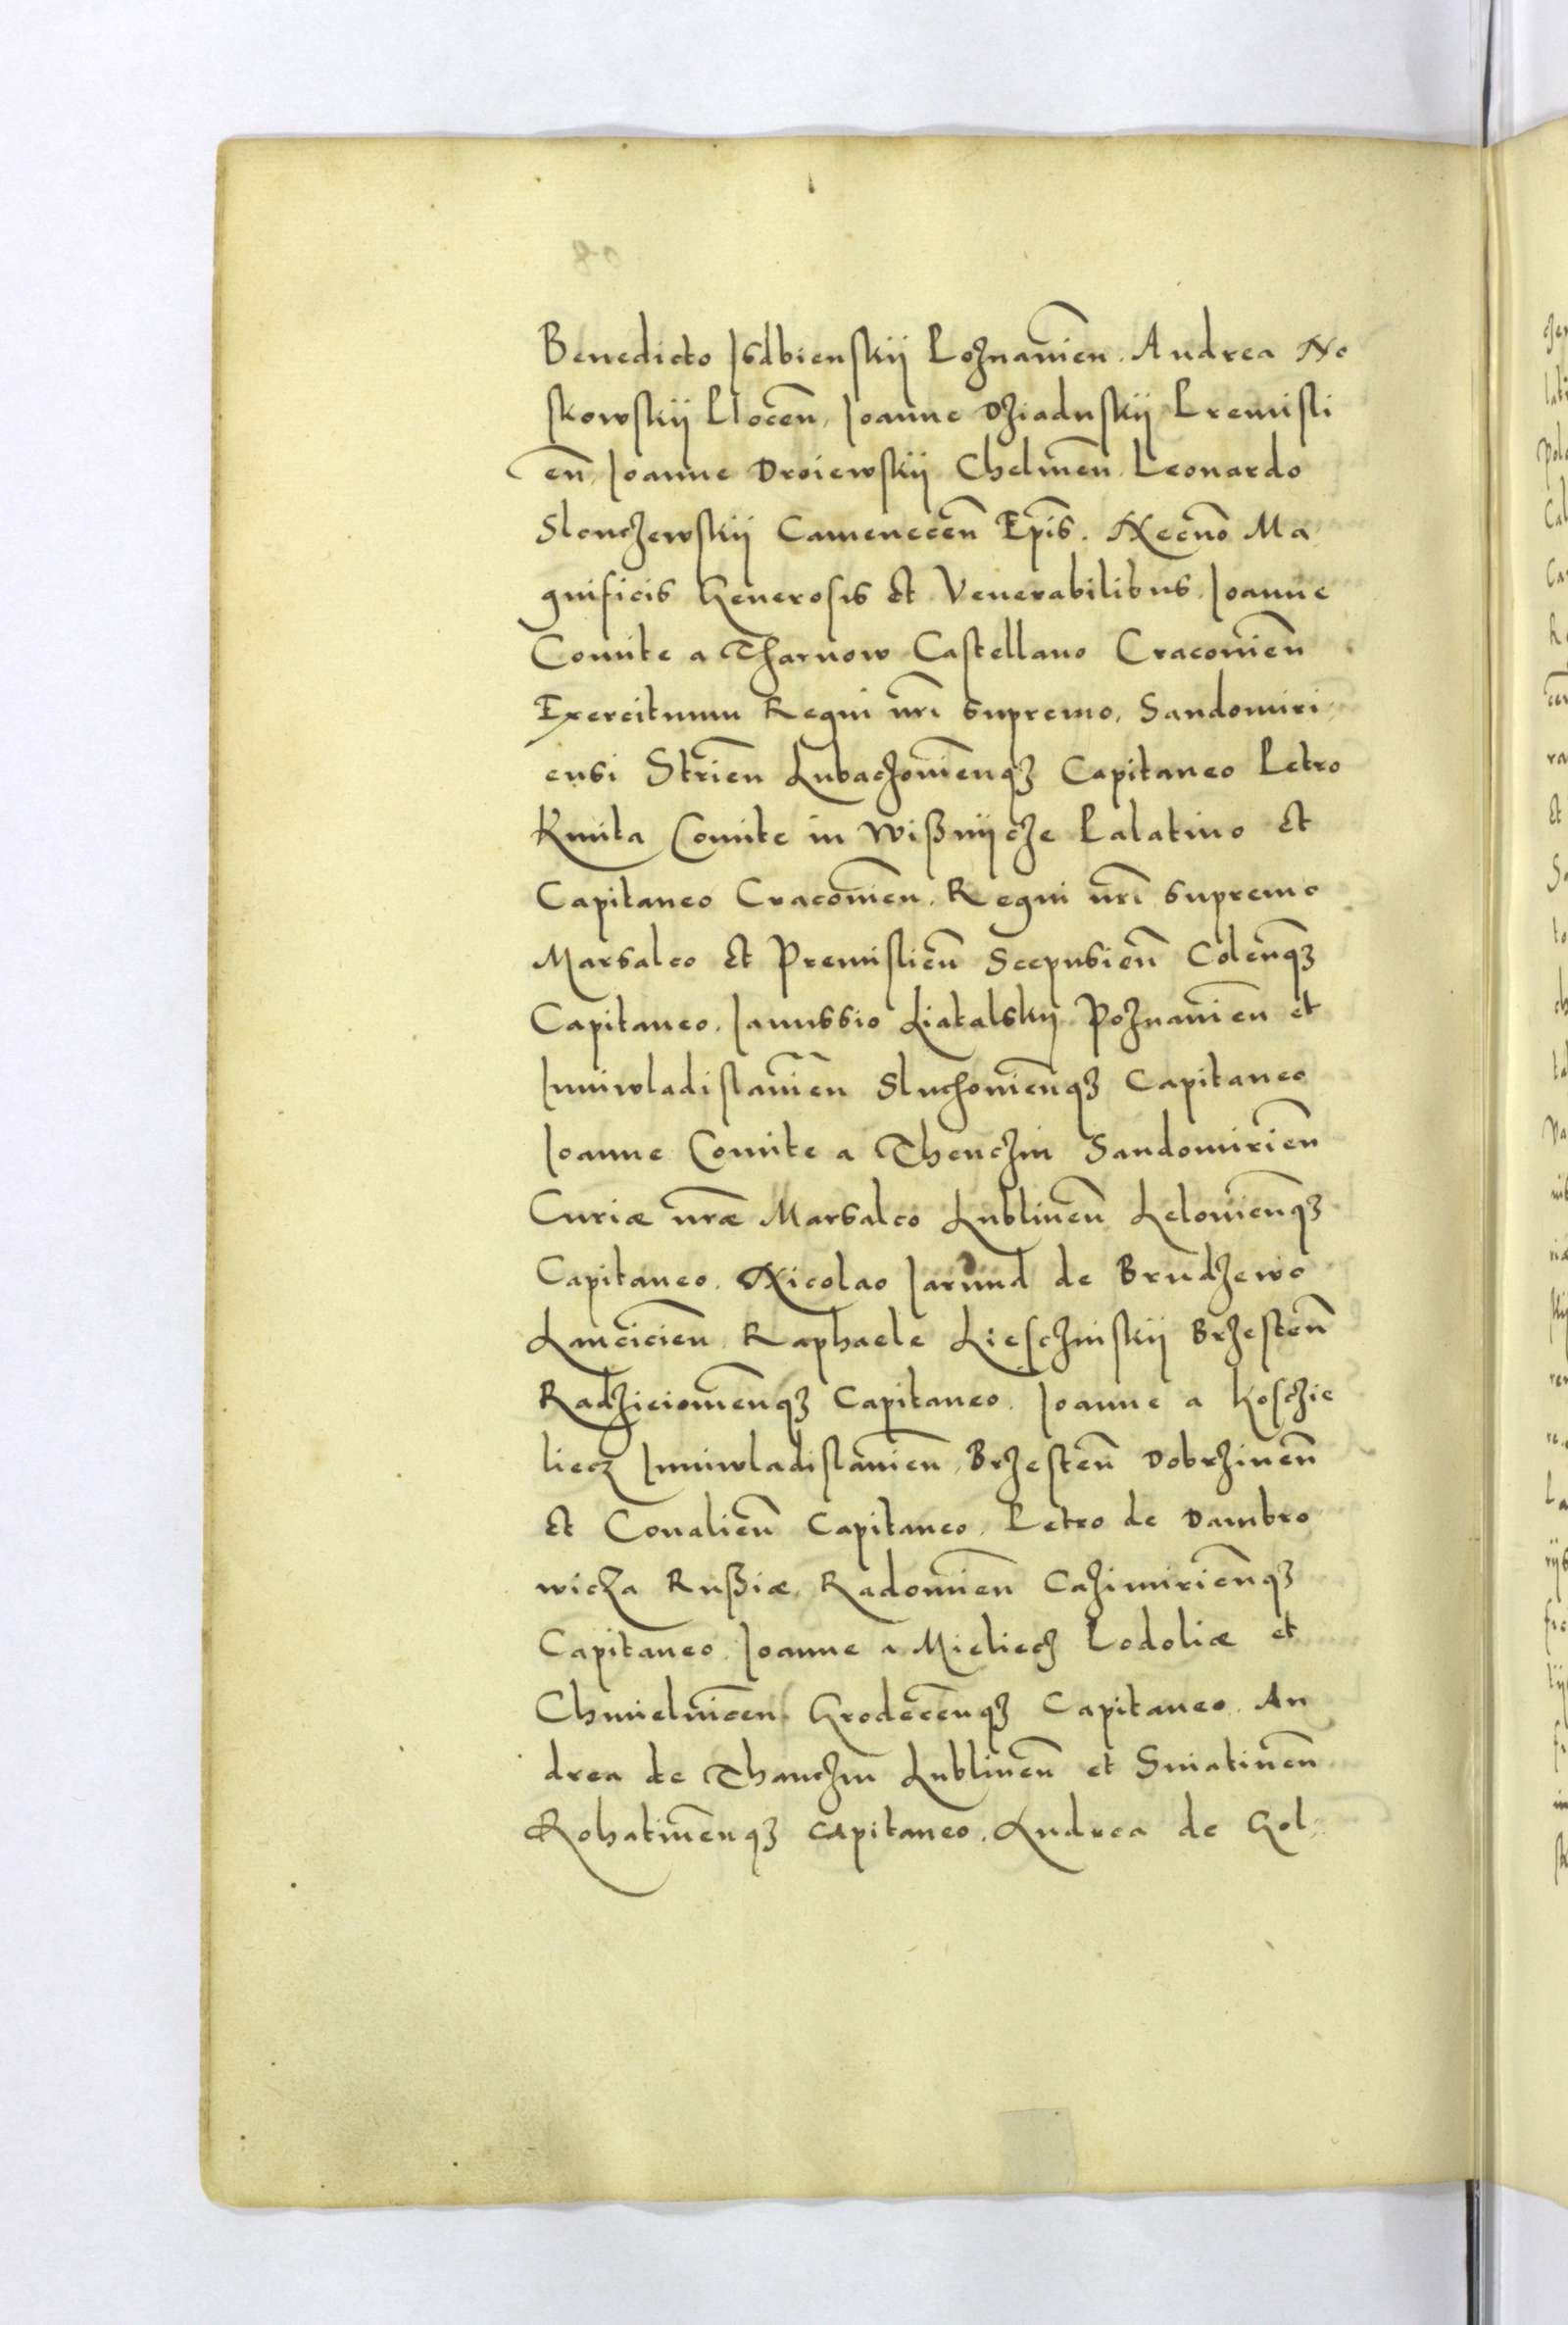 Benedicto Isdbienskÿ Poznanien̄. Andrea No
skowskÿ Plocen̄, Joanne Dziaduskÿ Premisli
en̄, Joanne Droiewskÿ Chelmen̄ Leonardo
Slonczewskÿ Camenecen̄ Ep̄is. Necno᷈ Ma
gnificis Generosis et Venerabilibus. Joanne
Comite a Tharnow Castellano Cracovien̄
Exercituum Regni nr̄i supremo, Sandomiri
ensi Strien̄ Lubaczovien̄qꝫ Capitaneo Petro
Kmita Comite in Wißnÿcze Palatino et
Capitaneo Cracovien̄. Regni nr̄i supremo
Marsalco et Premislien̄ Scepusien̄ Colen̄qꝫ
Capitaneo. Janussio Latalskÿ Poznanien̄ et
Juniwladislavien̄ Sluchovien̄qꝫ Capitaneo
Joanne Comite a Thenczin Sandomirien̄
Curiæ nr̄æ Marsalco Lublinen̄ Lelovien̄qꝫ
Capitaneo. Nicolao Jarund de Brudzewo
Lancicien̄ Raphaele Liesczinskÿ Brzesten̄
Radzieiovien̄qꝫ Capitaneo. Joanne a Kosczie
liecz Juniwladislavien̄, Brzesten̄ Dobrzinen̄
et Conalien̄ Capitaneo. Petro de Dambro
wicza Rußiæ Radomien̄ Cazimirien̄qꝫ
Capitaneo. Joanne a Mieliecz Podoliæ et
Chmielnicen̄ Grodecen̄qꝫ Capitaneo. An
drea de Thanczin Lublinen̄ et Sniatinen̄
Rohatinen̄qꝫ Capitaneo. Andrea de Gol